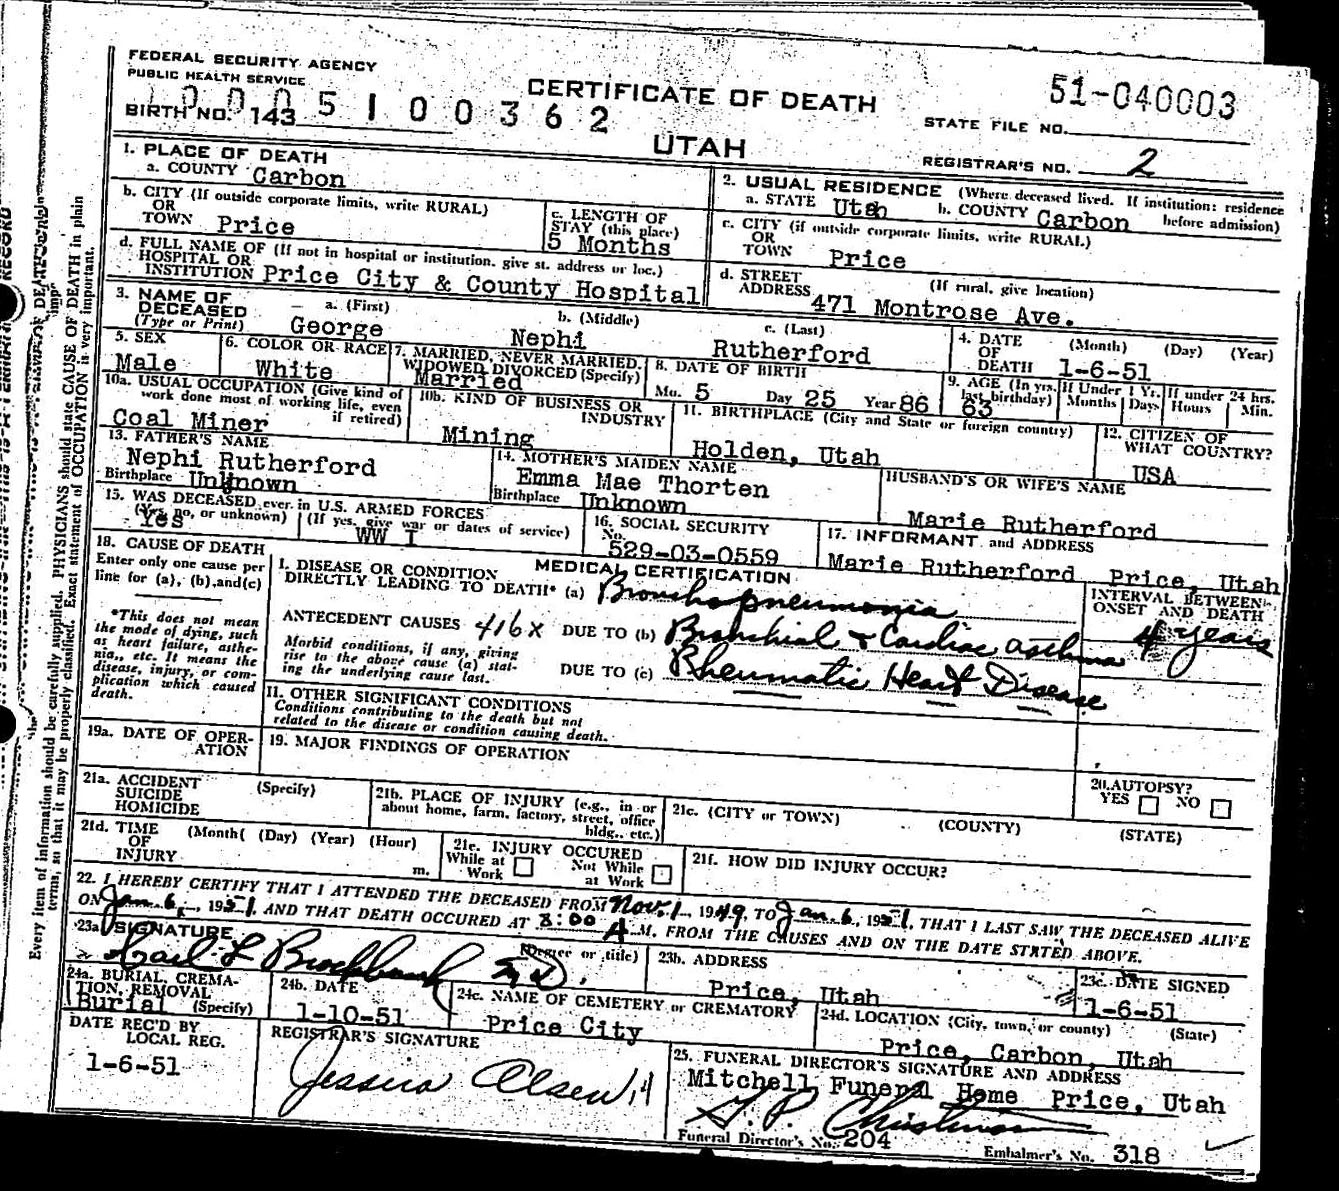 FEDERAL SECURITY AGENCY
PUBLIC HEALTH SERVICE
BIRTH NO. 143 5 1 0 0 3 6 2
CERTIFICATE OF DEATH
UTAH
51-040003
STATE FILE NO.
REGISTRAR'S NO. 2
1. PLACE OF DEATH
a. COUNTY Carbon
b. CITY (If outside corporate limits, write RURAL)
OR
TOWN Price
c. LENGTH OF
STAY (this place)
5 Months
d. FULL NAME OF (If not in hospital or institution, give st. address or loc.)
HOSPITAL OR
INSTITUTION Price City & County Hospital
2. USUAL RESIDENCE (Where deceased lived. If institution: residence
a. STATE Utah b. COUNTY Carbon before admission)
c. CITY (if outside corporate limits, write RURAL)
OR
TOWN Price
d. STREET (If rural, give location)
ADDRESS 471 Montrose Ave.
3. NAME OF
DECEASED
(Type or Print)
a. (First) b. (Middle) c. (Last)
George Nephi Rutherford
4. DATE (Month) (Day) (Year)
OF
DEATH 1-6-51
5. SEX
Male
6. COLOR OR RACE
White
7. MARRIED, NEVER MARRIED,
WIDOWED DIVORCED (Specify)
Married
8. DATE OF BIRTH
Mo. 5 Day 25 Year 86
9. AGE (In yrs. last birthday)
63
If Under 1 Yr.
Months Days
If under 24 hrs.
Hours Min.
10a. USUAL OCCUPATION (Give kind of
work done most of working life, even
if retired)
Coal Miner
10b. KIND OF BUSINESS OR
INDUSTRY
Mining
11. BIRTHPLACE (City and State or foreign country)
Holden, Utah
12. CITIZEN OF
WHAT COUNTRY?
USA
13. FATHER'S NAME
Nephi Rutherford
Birthplace Unknown
14. MOTHER'S MAIDEN NAME
Emma Mae Thorten
Birthplace Unknown
HUSBAND'S OR WIFE'S NAME
Marie Rutherford
15. WAS DECEASED ever in U.S. ARMED FORCES
(Yes, no, or unknown) (If yes, give war or dates of service)
Yes WW I
16. SOCIAL SECURITY
No.
529-03-0559
17. INFORMANT and ADDRESS
Marie Rutherford Price, Utah
18. CAUSE OF DEATH
Enter only one cause per
line for (a), (b), and (c)
*This does not mean
the mode of dying, such
as heart failure, asthe-
nia, etc. It means the
disease, injury, or com-
plication which caused
death.
MEDICAL CERTIFICATION
I. DISEASE OR CONDITION
DIRECTLY LEADING TO DEATH* (a) Bronchopneumonia
ANTECEDENT CAUSES 416X DUE TO (b) Bronchial + Cardiac asthma
Morbid conditions, if any, giving
rise to the above cause (a) stat-
ing the underlying cause last.
DUE TO (c) Rheumatic Heart Disease
INTERVAL BETWEEN
ONSET AND DEATH
4 years
II. OTHER SIGNIFICANT CONDITIONS
Conditions contributing to the death but not
related to the disease or condition causing death.
19a. DATE OF OPER-
ATION
19. MAJOR FINDINGS OF OPERATION
20. AUTOPSY?
YES NO
21a. ACCIDENT (Specify)
SUICIDE
HOMICIDE
21b. PLACE OF INJURY (e.g., in or
about home, farm, factory, street, office
bldg., etc.)
21c. (CITY or TOWN) (COUNTY) (STATE)
21d. TIME (Month( (Day) (Year) (Hour)
OF
INJURY m.
21e. INJURY OCCURED
While at Work
Not While at Work
21f. HOW DID INJURY OCCUR?
22. I HEREBY CERTIFY THAT I ATTENDED THE DECEASED FROM Nov. 1, 1949, TO Jan. 6, 1951, THAT I LAST SAW THE DECEASED ALIVE
ON Jan. 6, 1951, AND THAT DEATH OCCURED AT 8:00 A M. FROM THE CAUSES AND ON THE DATE STATED ABOVE.
23a. SIGNATURE (Degree or title)
L Brockbank M.D.
23b. ADDRESS
Price, Utah
23c. DATE SIGNED
1-6-51
24a. BURIAL, CREMA-
TION, REMOVAL
Burial (Specify)
24b. DATE
1-10-51
24c. NAME OF CEMETERY or CREMATORY
Price City
24d. LOCATION (City, town, or county) (State)
Price, Carbon, Utah
DATE REC'D BY
LOCAL REG.
1-6-51
REGISTRAR'S SIGNATURE
Jessica Olsen
25. FUNERAL DIRECTOR'S SIGNATURE AND ADDRESS
Mitchell Funeral Home Price, Utah
Funeral Director's No. 204
Embalmer's No. 318
Every item of information should be carefully supplied. PHYSICIANS should state CAUSE OF DEATH in plain
terms, so that it may be properly classified. Exact statement of OCCUPATION is very important.